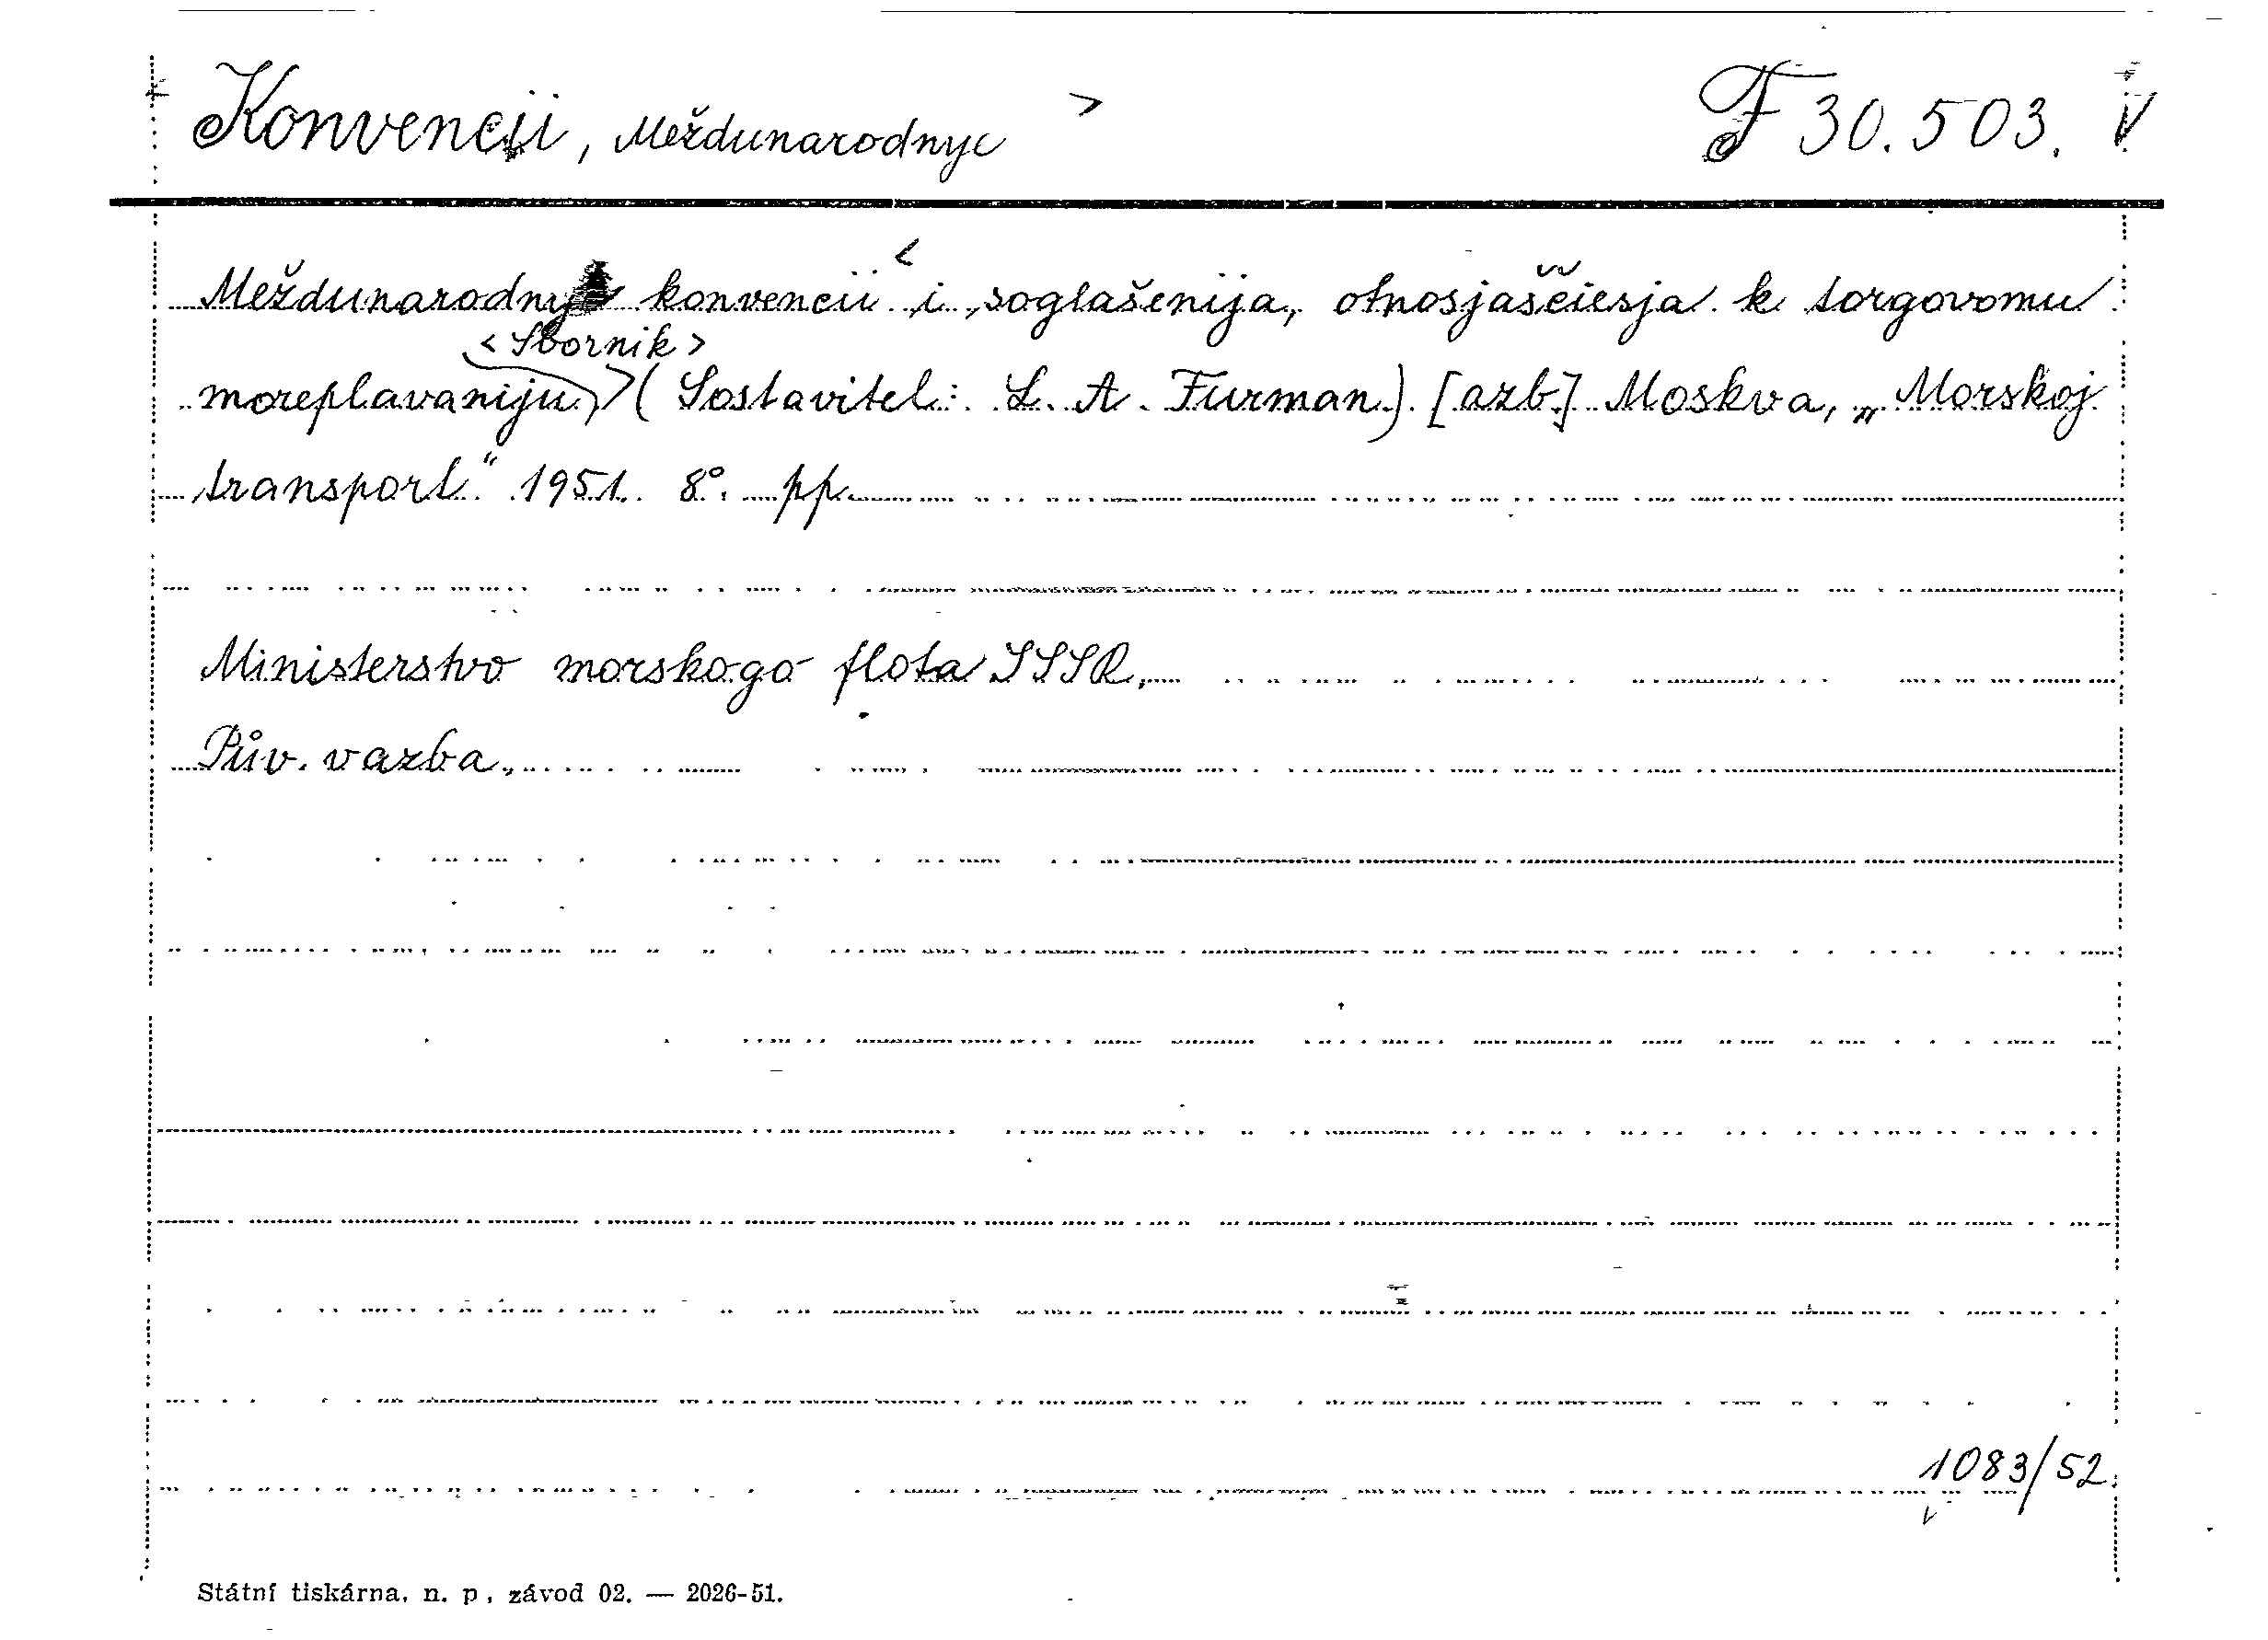 Konvencii, Meždunarodnye > F 30.503. V
Meždunarodnye konvencii < i soglašenija, otnosjaščiesja k torgovomu
<Sbornik>
moreplavaniju,> (Sostavitel: L. A. Furman.) [azb.] Moskva, „Morskoj
transport“ 1951. 8°. pp.
Ministerstvo morskogo flota SSSR.
Pův. vazba.
1083/52.
Státní tiskárna, n. p., závod 02. — 2026-51.